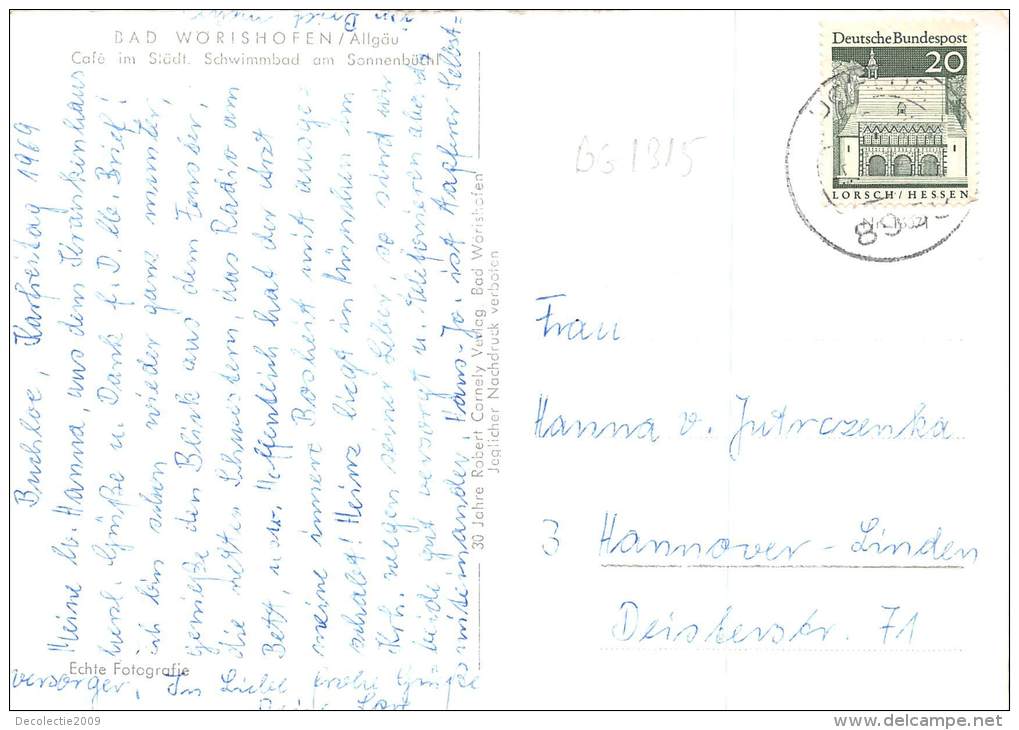 BAD WÖRISHOFEN/Allgäu
Café im Städt. Schwimmbad am Sonnenbüchl
Buchloe, Karfreitag 1969
Meine lb. Hanna, aus dem Krankenhaus
herzl. Grüße u. Dank f. D. lb. Brief!
ich bin schon wieder ganz munter,
genieße den Blick aus dem Fenster,
die netten Schwestern, das Radio am
Bett, usw. Hoffentlich hat der Arzt
meine innere Bosheit mit ausge-
schabt! Heinz liegt in München im
Krh. wegen seiner Leber, so sind wir
beide gut versorgt u. telefonieren abends
miteinander! Hans-Jo. ist tapferer Selbst-
versorger. In Liebe frohe Grüße
30 Jahre Robert Cornely Verlag Bad Wörishofen
Jeglicher Nachdruck verboten
Echte Fotografie
BG 1315
Deutsche Bundespost
20
LORSCH/HESSEN
Frau
Hanna v. Jutrczenka
3 Hannover-Linden
Deisterstr. 71
Decolectie2009
delcampe.net